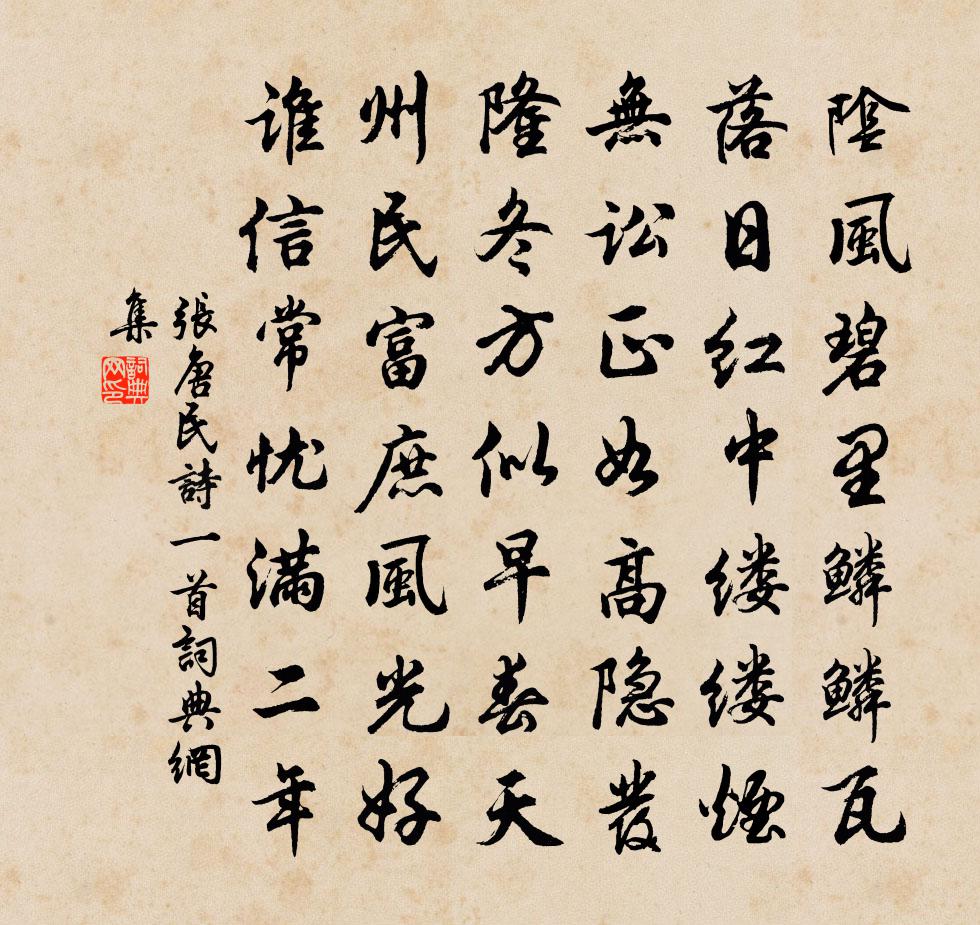 陰風碧里鱗鱗瓦
落日紅中缕缕煙
無訟正如高隐叢
隆冬方似早春天
州民富庶風光好
誰信常忧满二年
張唐民詩一首詞典網
集
詞典网印